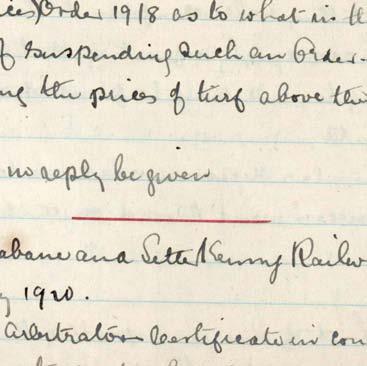 ices) Order 1918 as to what is th
f suspending such an Order.
ng the prices of turf above the
no reply be given
abane and Letter Kenny Railw
y 1920.
arbitrator certificate in con